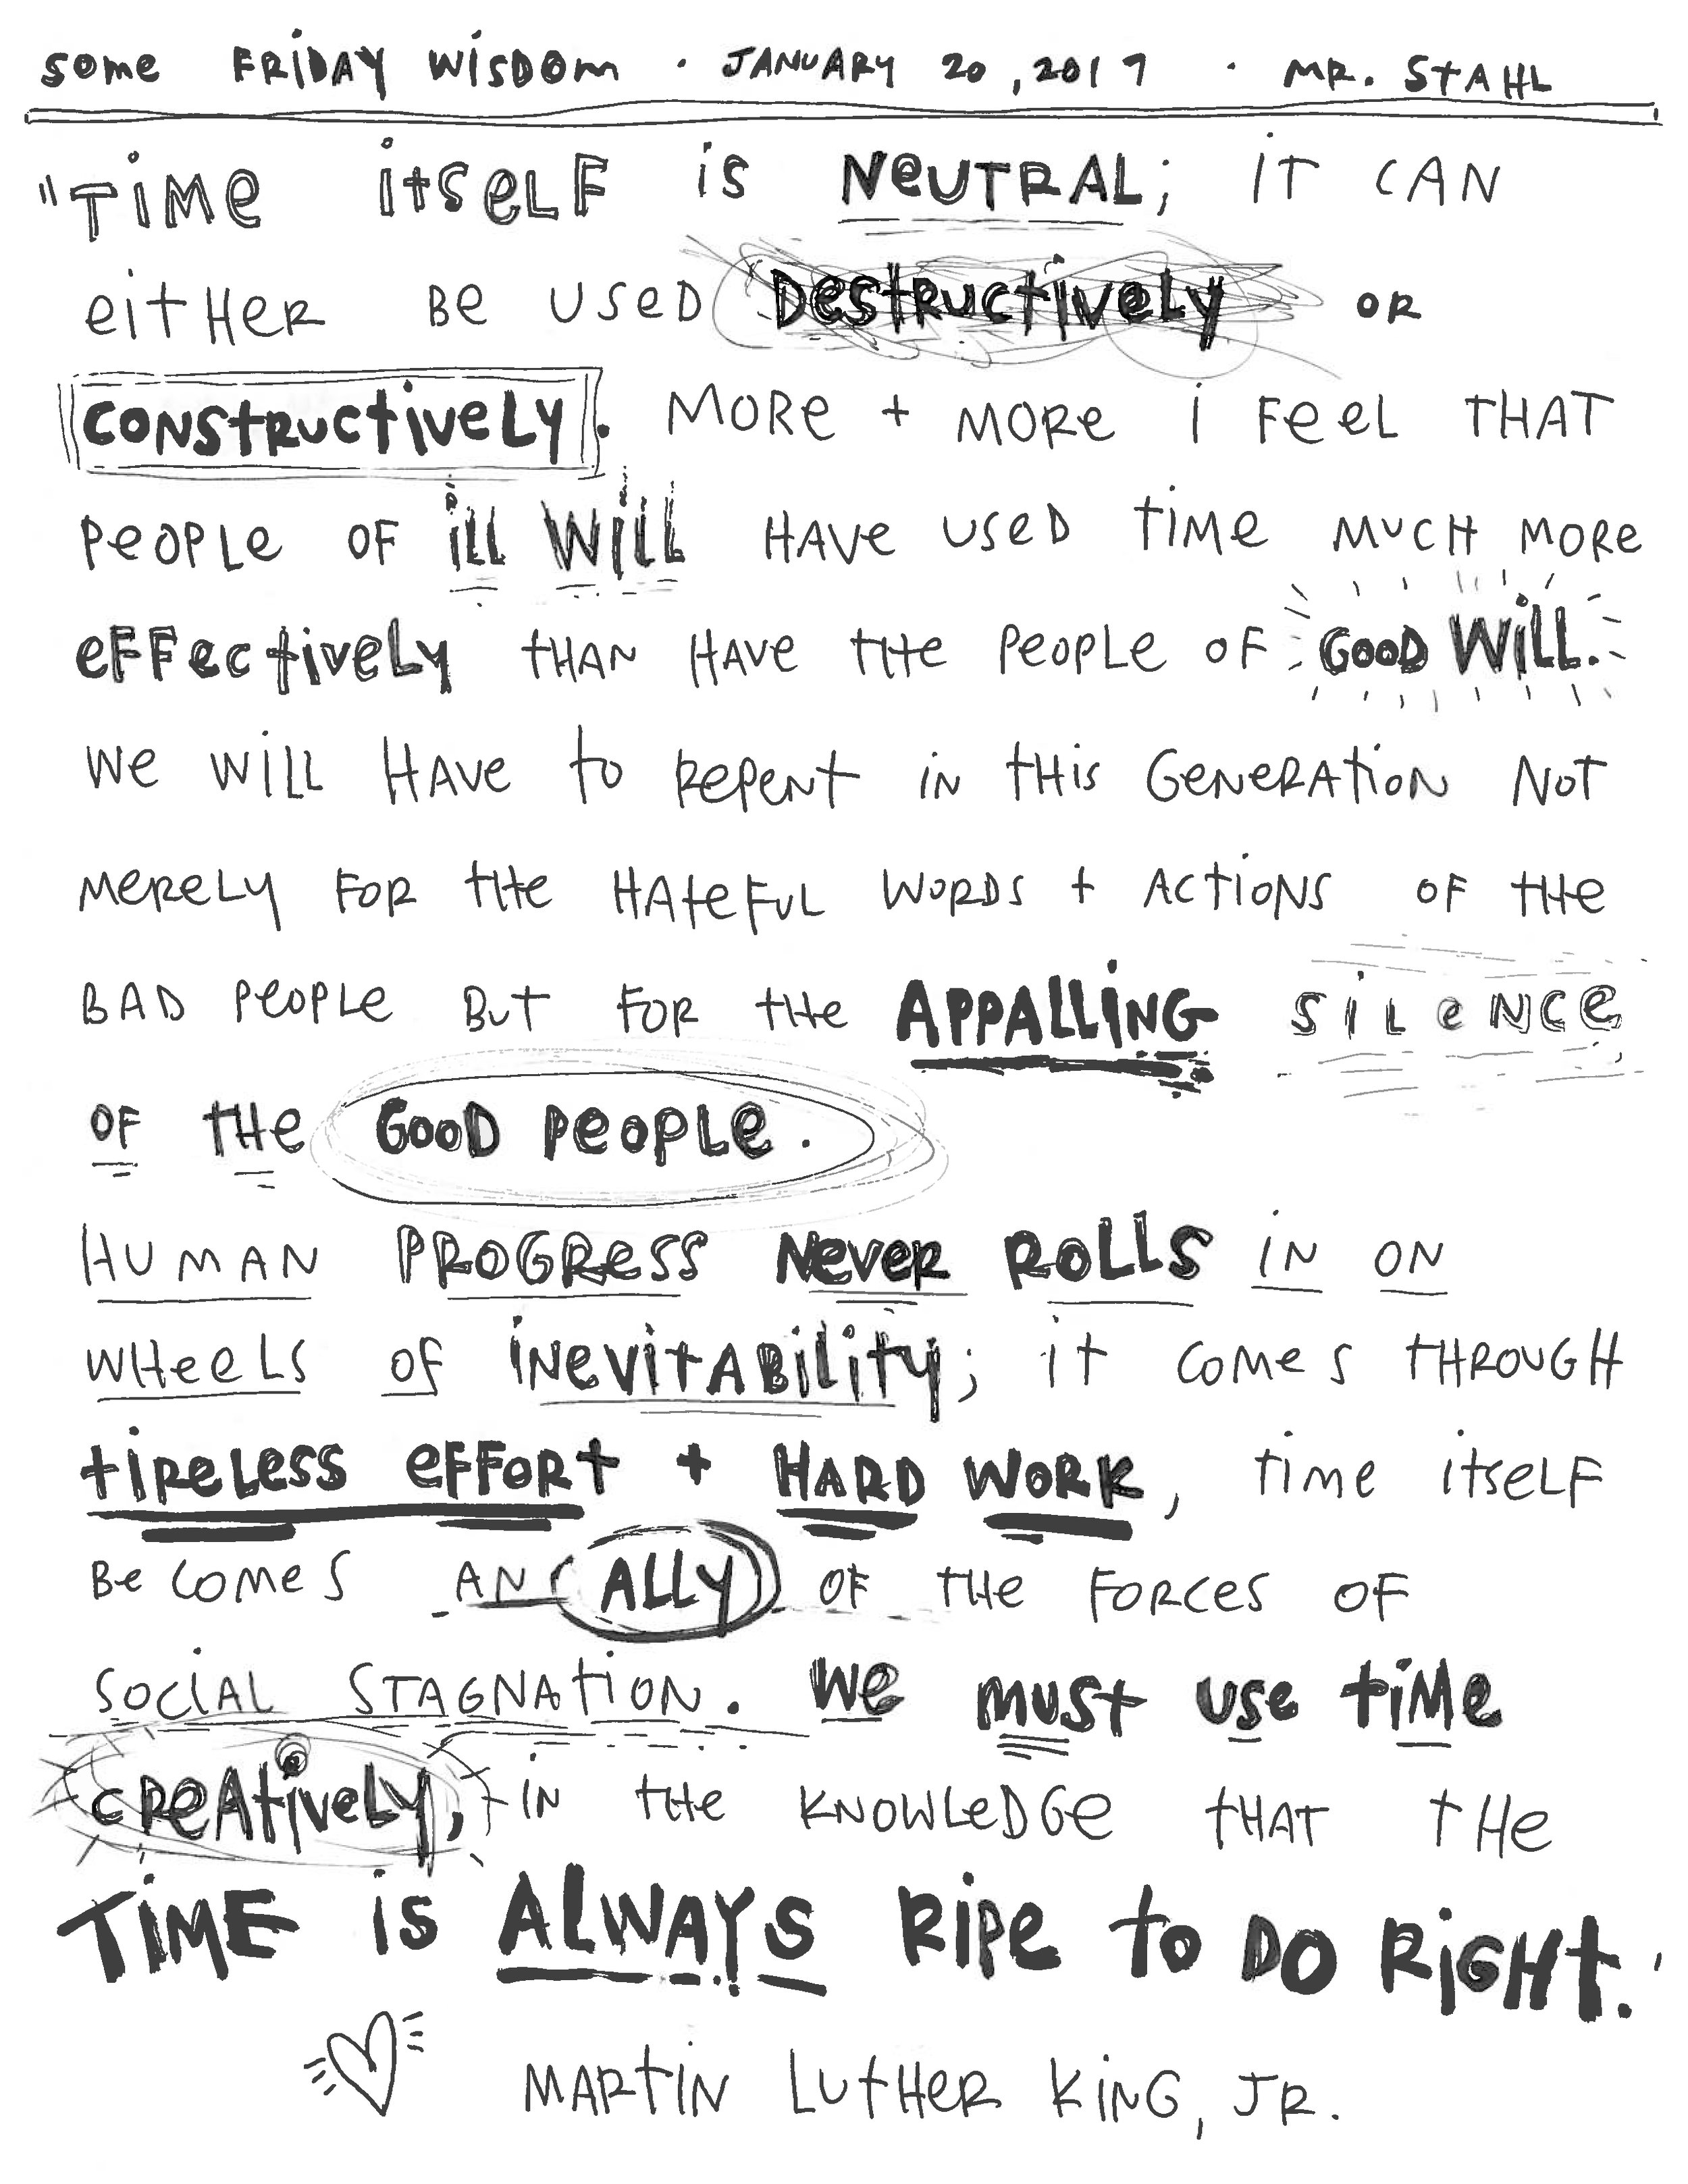 some FRiDAY WisDom · JANUARY 20, 2017 · MR. STAHL
"TiMe itseLF is NeUTRAL; iT CAN
eitHeR Be UseD DestRuctiveLy OR
CONStRuctiveLy. MORe + MORe i FeeL THAT
PeOPLe OF iLL WiLL HAVe UseD TiMe MUCH MORe
eFFectiveLy tHAN HAVe tHe PeOPLe OF GOOD WiLL.
We WiLL HAVe to RePeNT iN tHis GeNeRAtiON NOT
MeReLy FOR tHe HAteFUL WORDS + ActiONS OF tHe
BAD PeOPLe BUT FOR tHe APPALLiNG SiLeNCe
OF tHe GOOD PeOPLe.
HUMAN PROGRess NeVeR ROLLS iN ON
WHeeLs OF iNeVitABiLity; it COMeS THROUGH
tiReLess eFFORt + HARD WORK, TiMe itseLF
BeCOMeS AN ALLy OF tHe FORCeS OF
SOCiAL STAGNAtiON. We MUSt Use tiMe
CReAtiVeLy, iN tHe KNOWLeDGe tHAT tHe
TiME is ALWAYS RiPe to DO RiGHt."
MARtiN LUtHeR KiNG, JR.